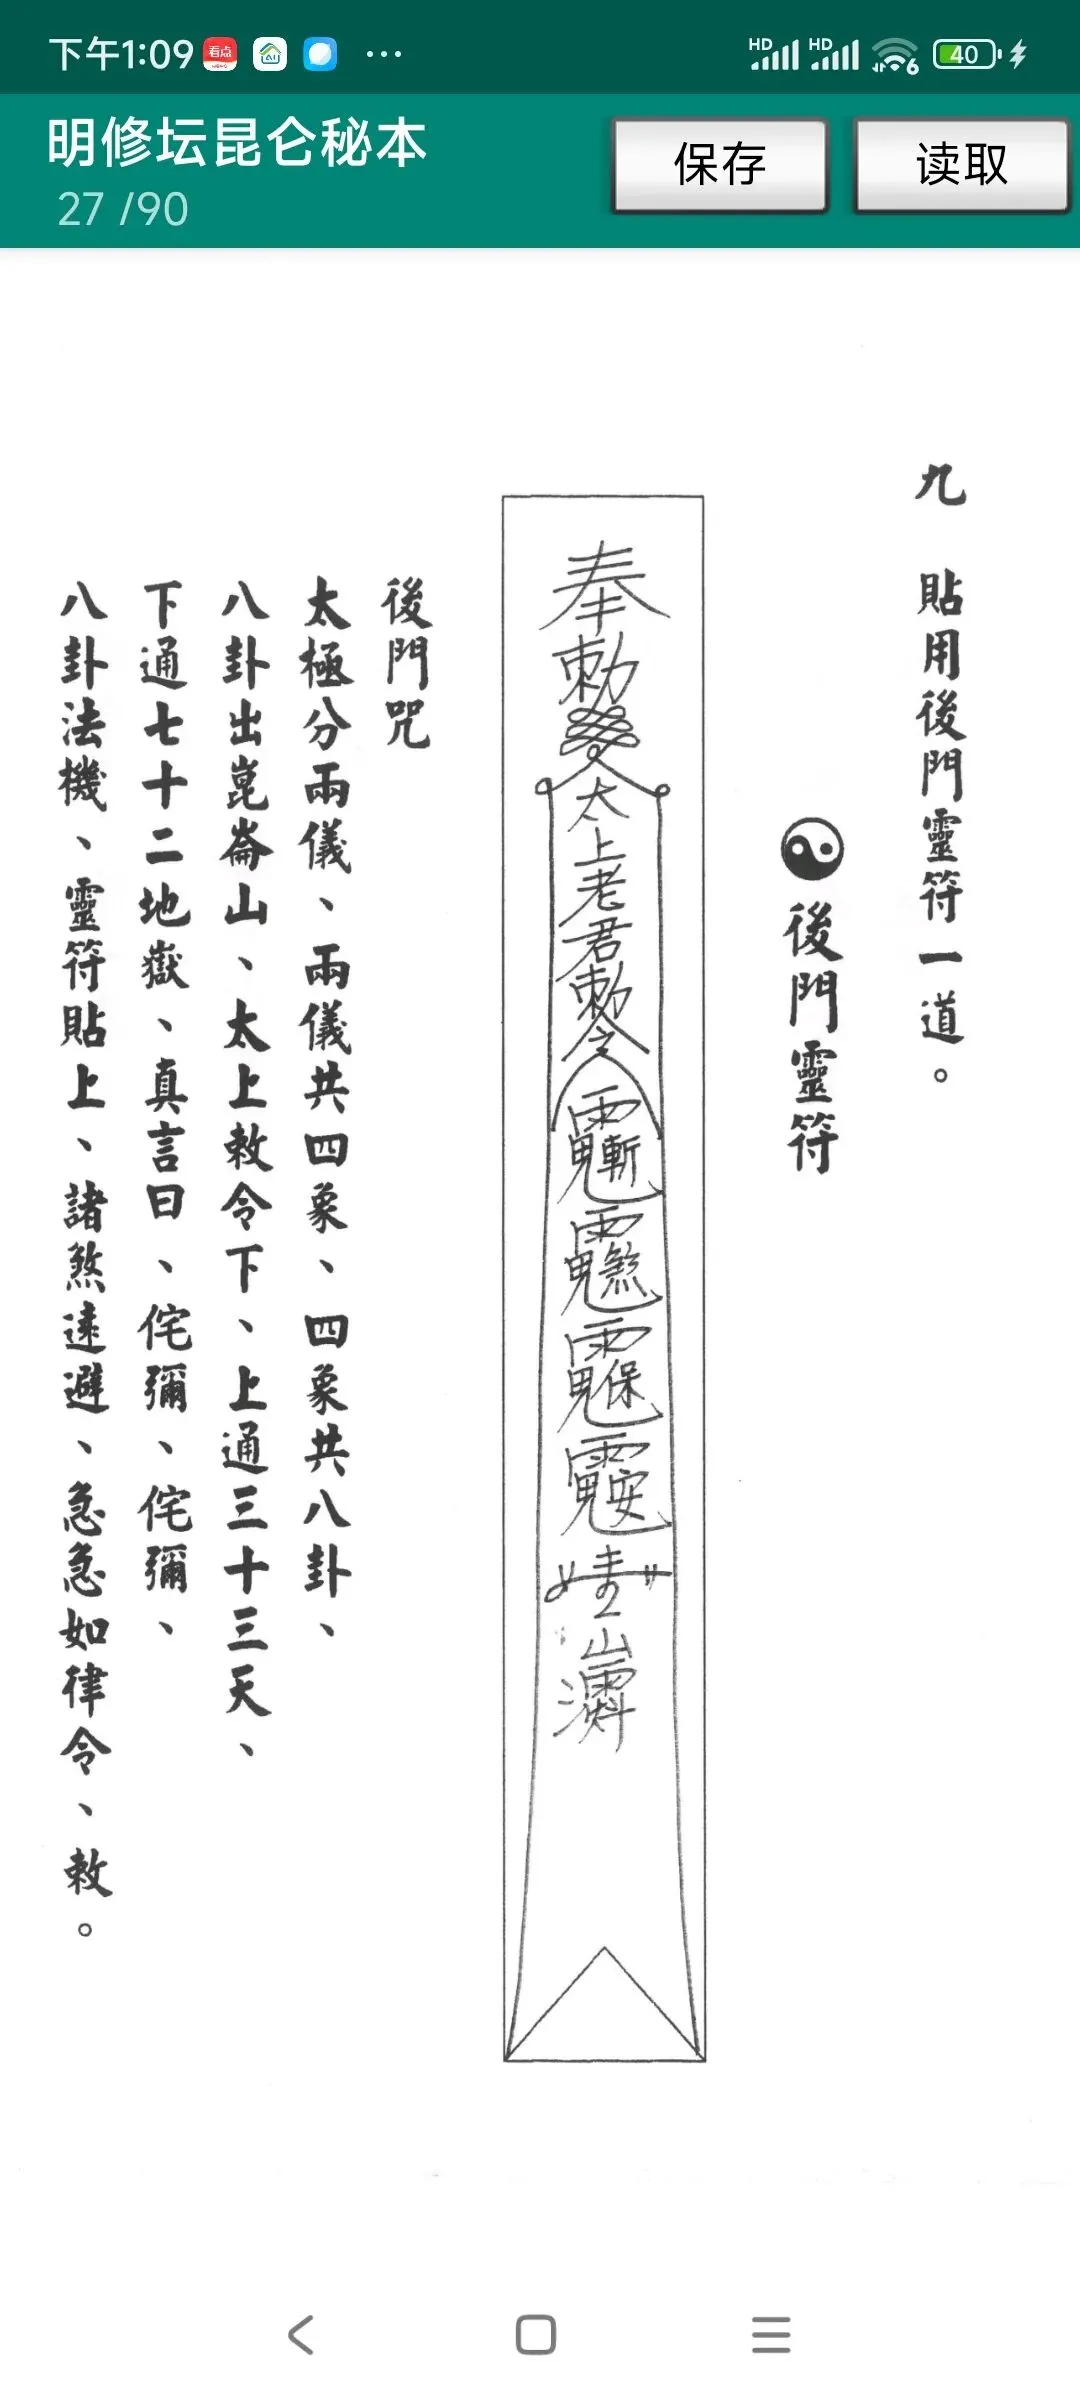 下午1:09
看点
HD HD 6 40
明修坛昆仑秘本
27 /90
保存
读取
九 貼用後門靈符一道。
後門靈符
奉
勅
太
上
老
君
勅
令
後門咒
太極分兩儀、兩儀共四象、四象共八卦、
八卦出崑崙山、太上敕令下、上通三十三天、
下通七十二地嶽、真言曰、侘彌、侘彌、
八卦法機、靈符貼上、諸煞遠避、急急如律令、敕。